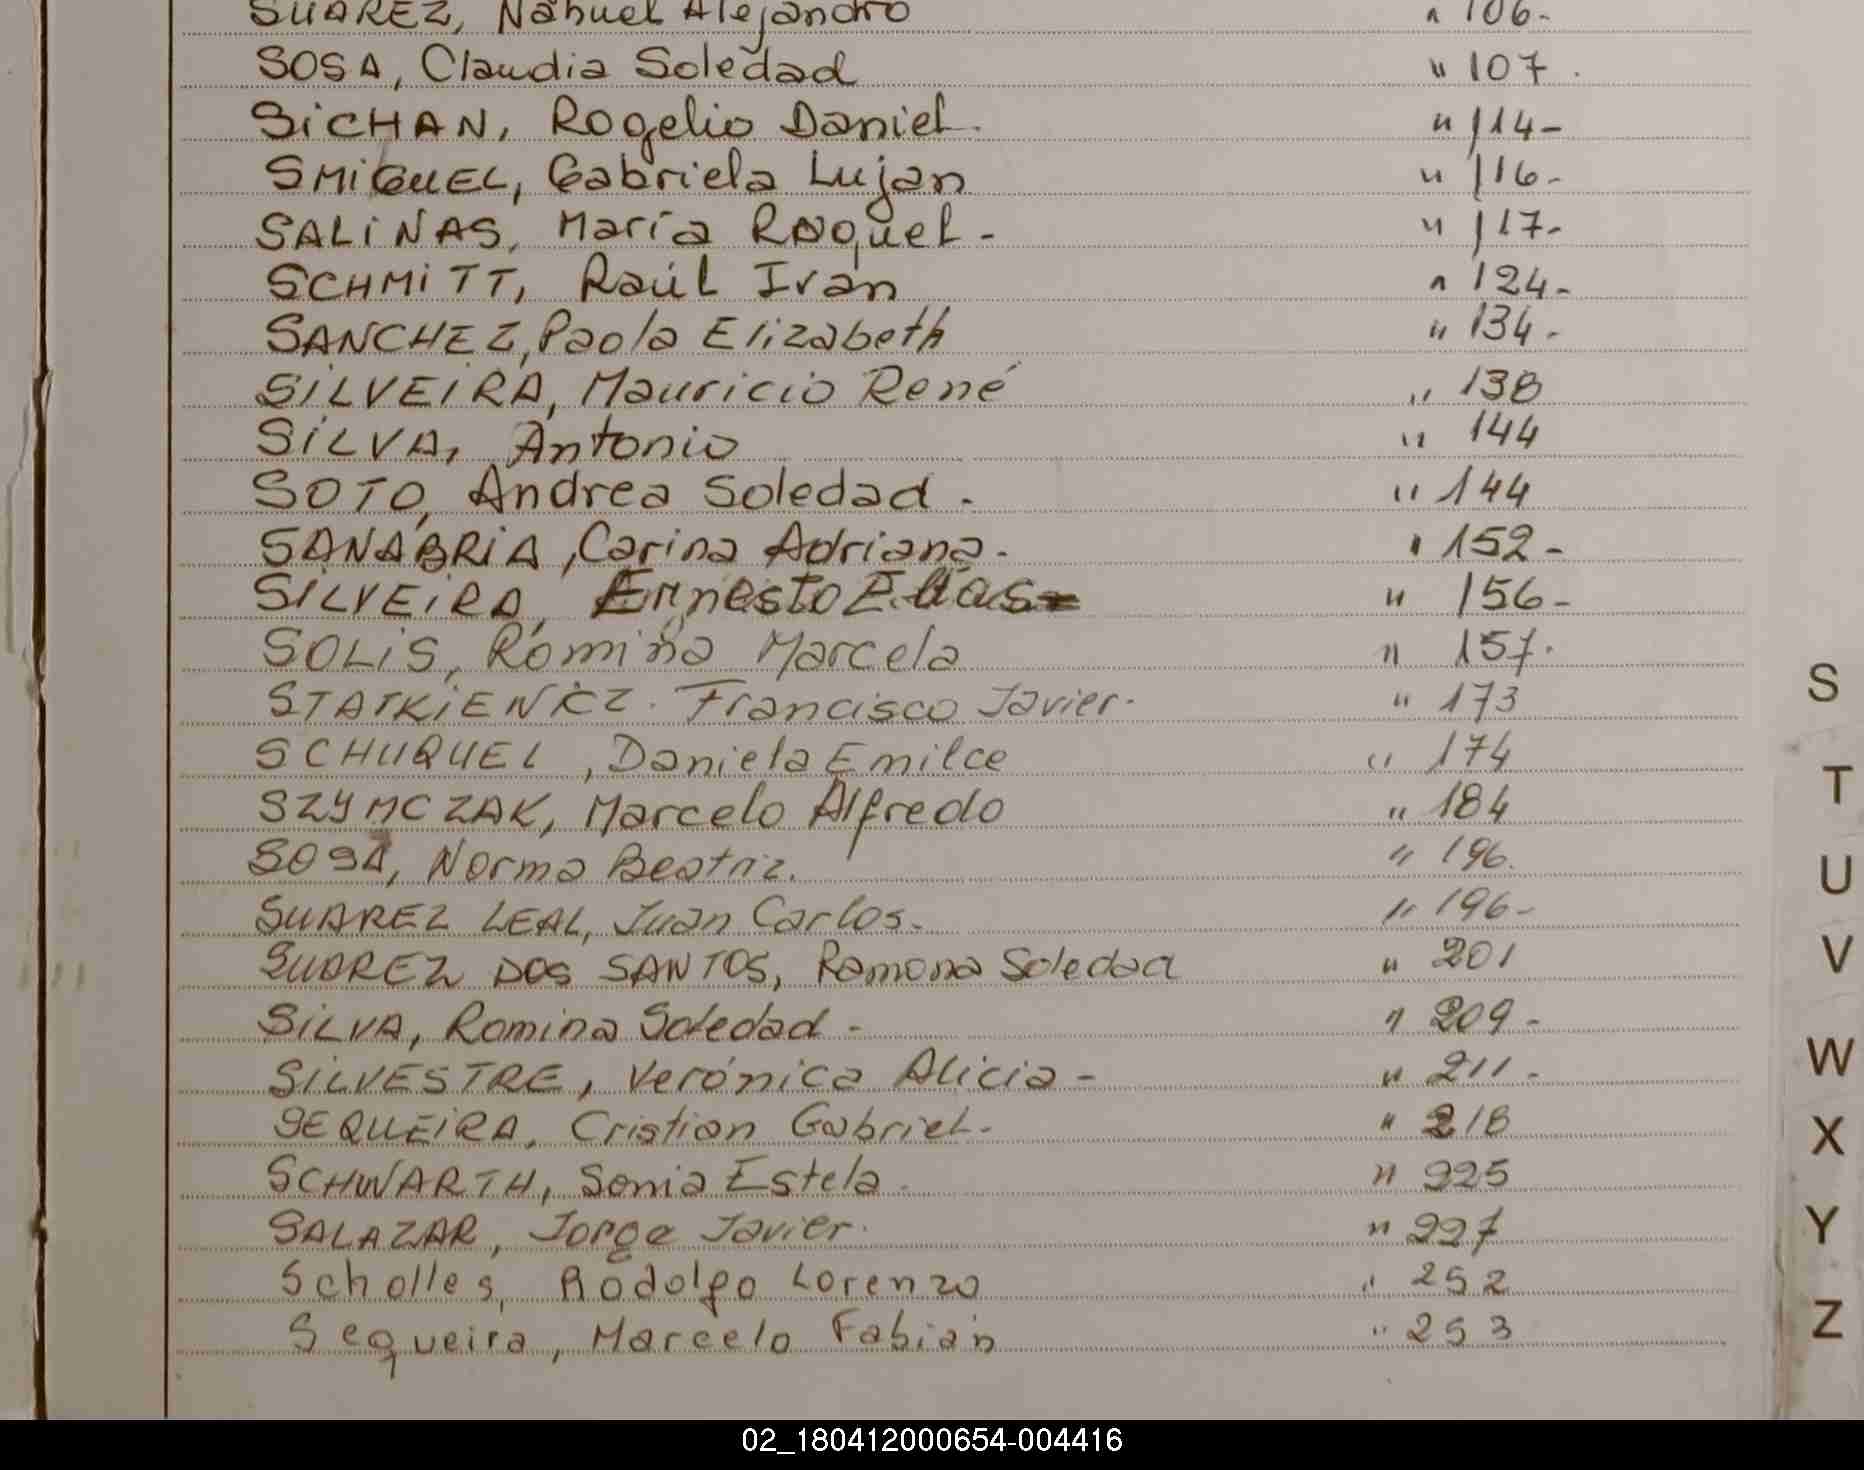 SUAREZ, Nahuel Alejandro " 106-
SOSA, Claudia Soledad " 107.
SiCHAN, Rogelio Daniel. " 114-
SMiGUEL, Gabriela Lujan " 116-
SALiNAS, María Raquel- " 117-
SCHMiTT, Raúl Iván " 124-
SANCHEZ, Paola Elizabeth " 134-
SiLVEIRA, Mauricio René " 138
SiLVA, Antonio " 144
SOTO, Andrea Soledad. " 144
SANABRiA, Carina Adriana- " 152-
SiLVEiRA, Ernesto Elias- " 156-
SOLiS, Romina Marcela " 157.
STATKiEWiCZ. Francisco Javier. " 173
SCHUQUEL, Daniela Emilce " 174
SZYMCZAK, Marcelo Alfredo " 184
SOSA, Norma Beatriz. " 196.
SUAREZ LEAL, Juan Carlos. " 196-
SUAREZ DOS SANTOS, Ramona Soledad " 201
SiLVA, Romina Soledad- " 209-
SiLVESTRE, Verónica Alicia- " 211-
SEQUEiRA, Cristian Gabriel- " 218
SCHWARTH, Sonia Estela. " 225
SALAZAR, Jorge Javier. " 227
Scholles, Rodolfo Lorenzo " 252
Sequeira, Marcelo Fabián " 253
S
T
U
V
W
X
Y
Z
02_180412000654-004416